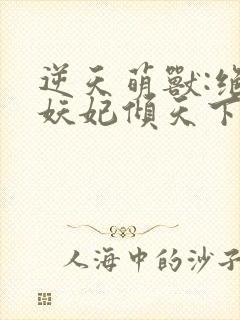 逆天萌獸:绝
妖妃傾天下
人海中的沙子